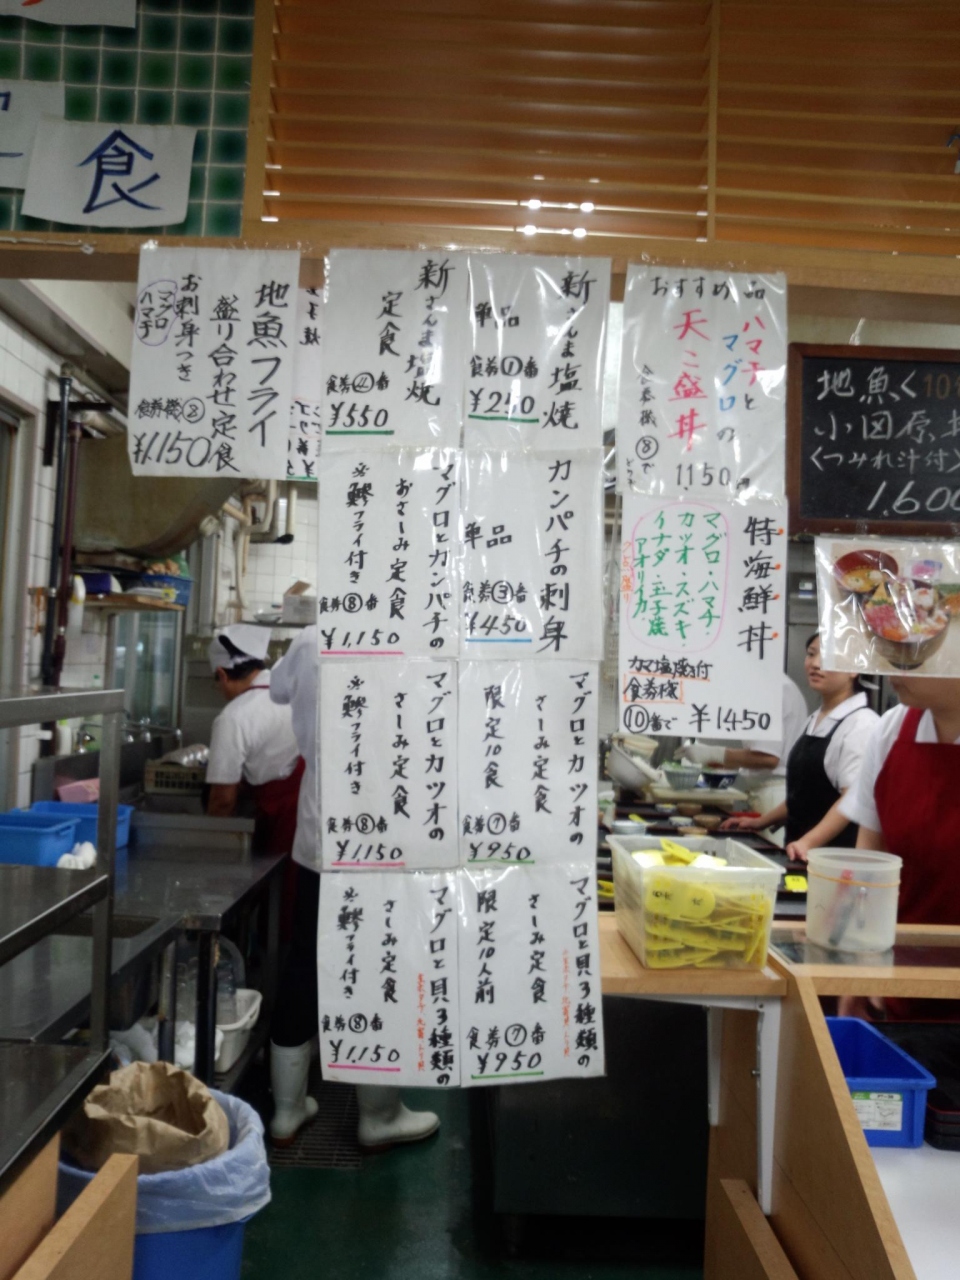 食
地魚フライ
盛り合わせ定食
お刺身つき
マグロ
ハマチ
食券機⑧
¥1,150
新さんま塩焼
定食
食券④番
¥550
新さんま塩焼
単品
食券①番
¥250
おすすめ品
ハマチと
マグロの
天こ盛丼
食券機⑧で
1,150円
地魚く10
小田原丼
〈つみれ汁付〉
1,600
マグロとカンパチの
おさしみ定食
※鰺フライ付き
食券⑧番
¥1,150
カンパチの刺身
単品
食券③番
¥450
特海鮮丼
マグロ・ハマチ・
カツオ・スズキ・
イナダ・玉子焼
アオリイカ
カマ塩焼き付
食券機
⑩番で
¥1,450
マグロとカツオの
さしみ定食
※鰺フライ付き
食券⑧番
¥1,150
マグロとカツオの
さしみ定食
限定10食
食券⑦番
¥950
マグロと貝3種類の
さしみ定食
※鰺フライ付き
食券⑧番
¥1,150
マグロと貝3種類の
さしみ定食
限定10人前
食券⑦番
¥950